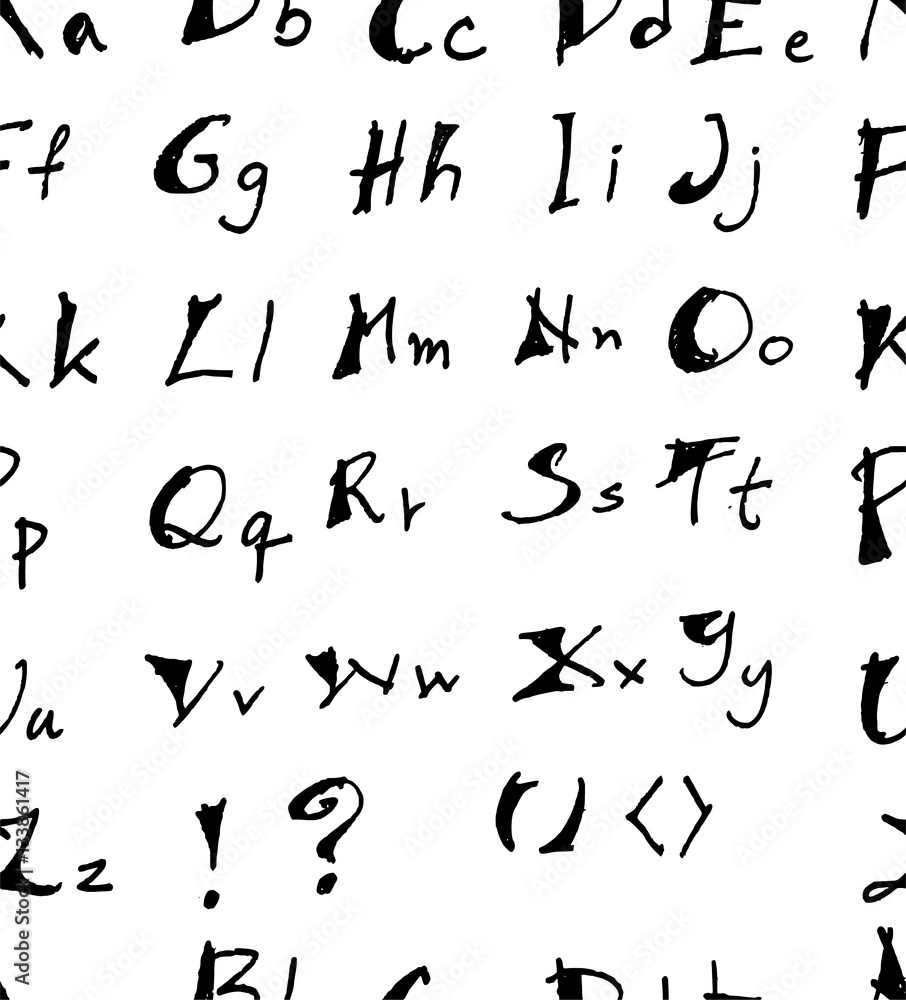 A a B b C c D d E e A
F f G g H h I i J j F
K k L l M m N n O o K
P p Q q R r S s T t P
U u V v W w X x Y y U
Z z ! ? ( ) < > Z
B b C D d A
Adobe Stock | #133861417